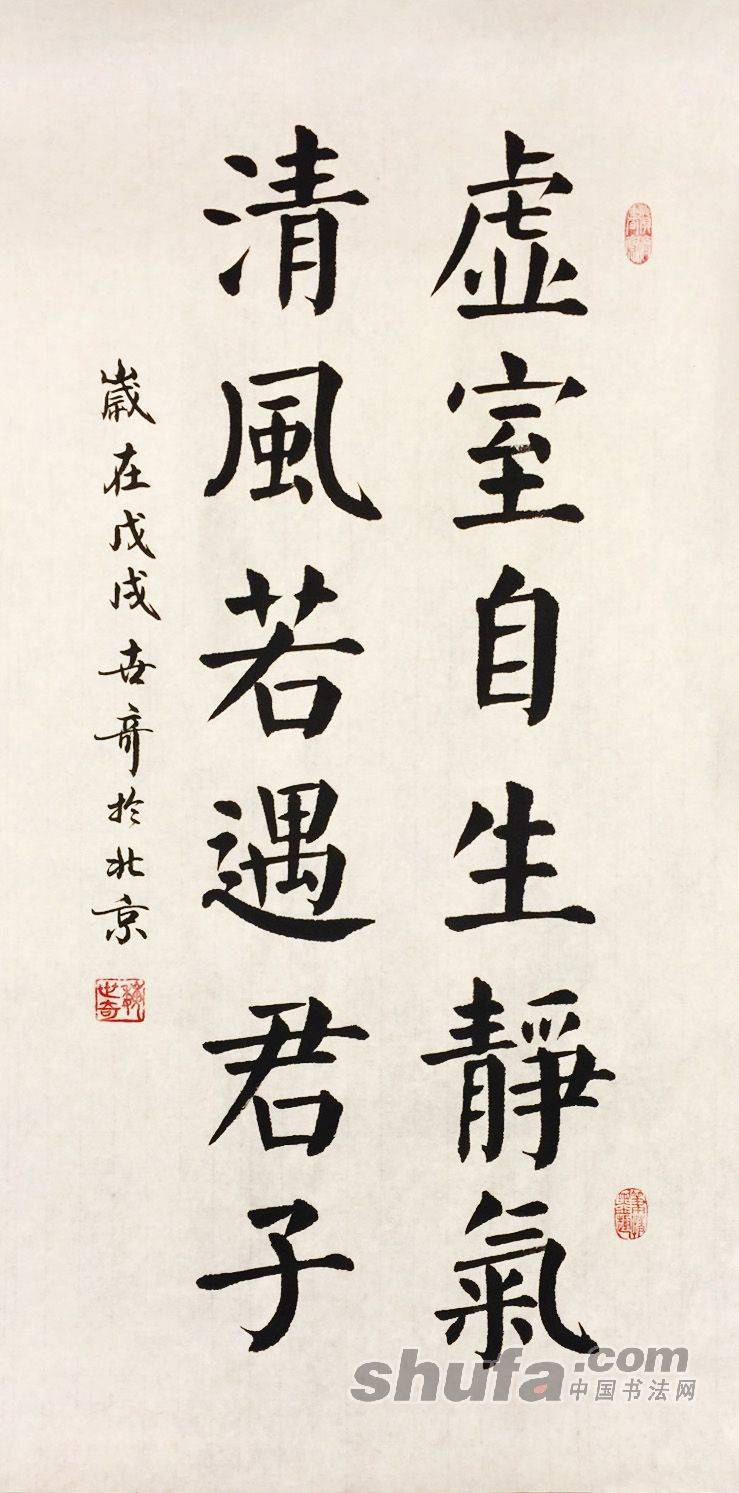 虛室自生靜氣
清風若遇君子
歲在戊戌世奇於北京
shufa.com
中国书法网